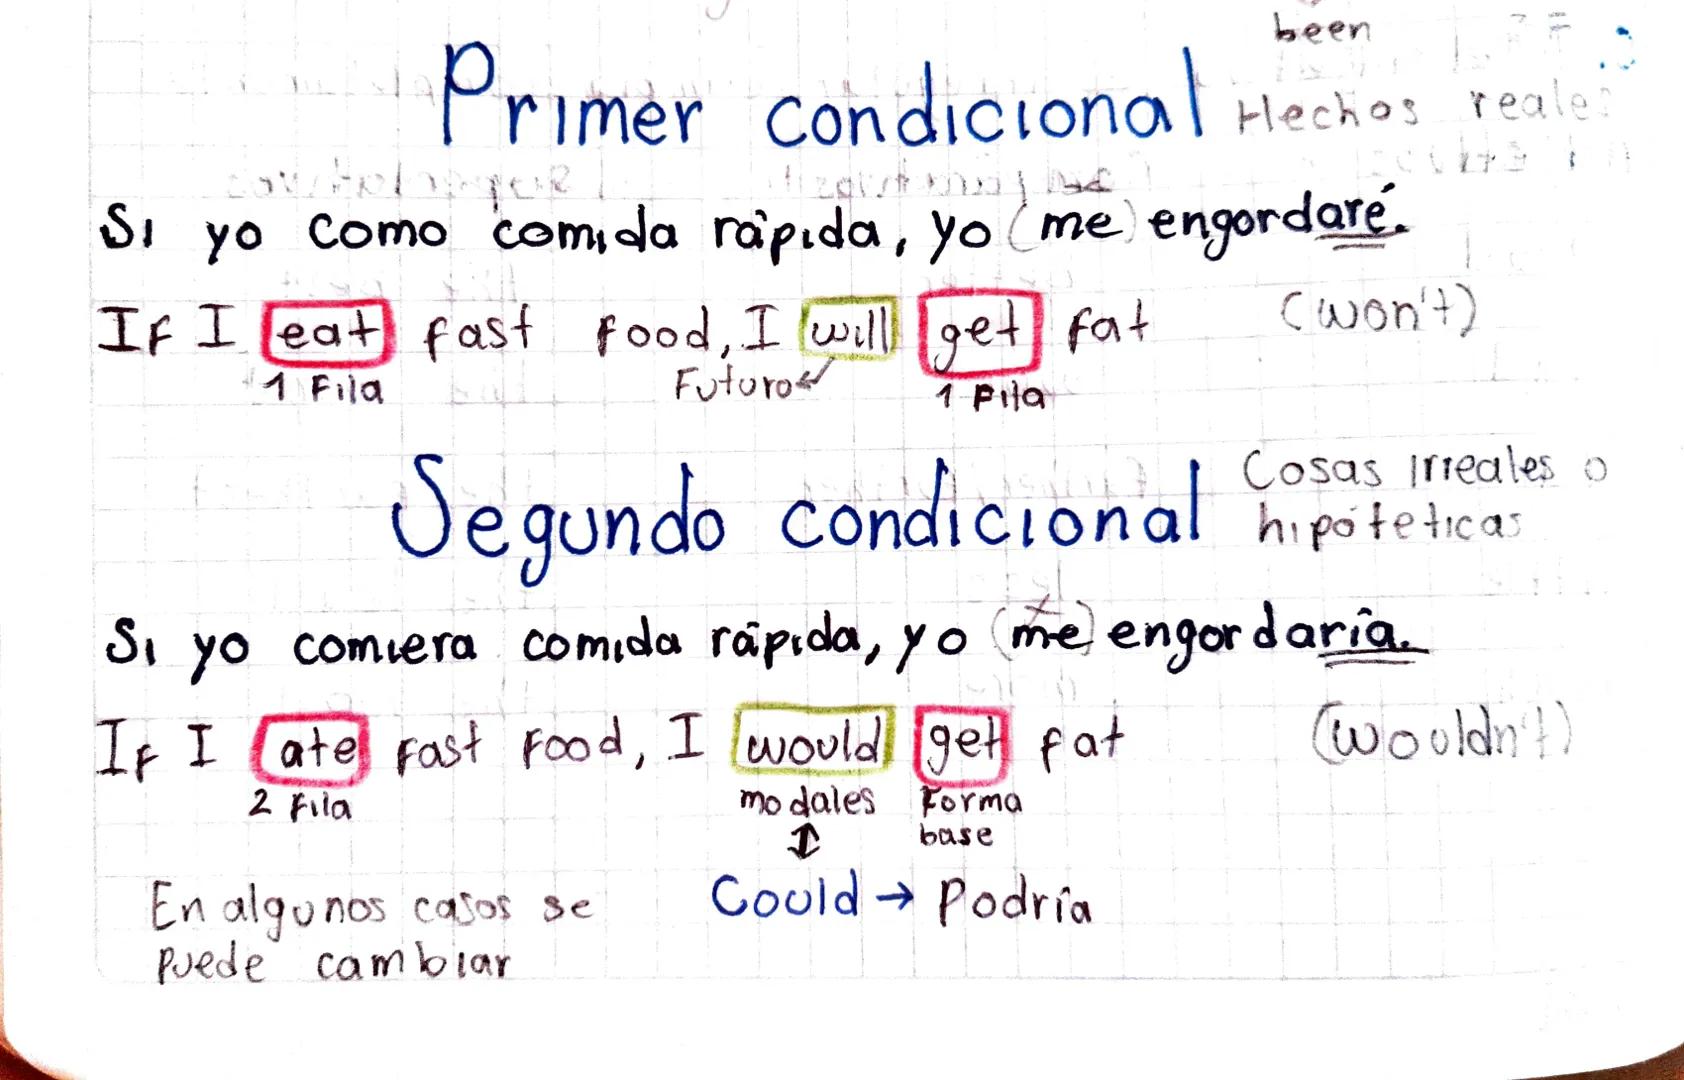 been
Primer condicional Hechos reales
Si yo como comida rápida, yo (me) engordaré.
If I eat fast food, I will get fat (won't)
1 Fila Futuro 1 Fila
Segundo condicional Cosas irreales o
hipóteticas
Si yo comiera comida rápida, yo (me) engordaría.
If I ate fast food, I would get fat (wouldn't)
2 Fila modales Forma
base
En algunos casos se Could → Podría
puede cambiar